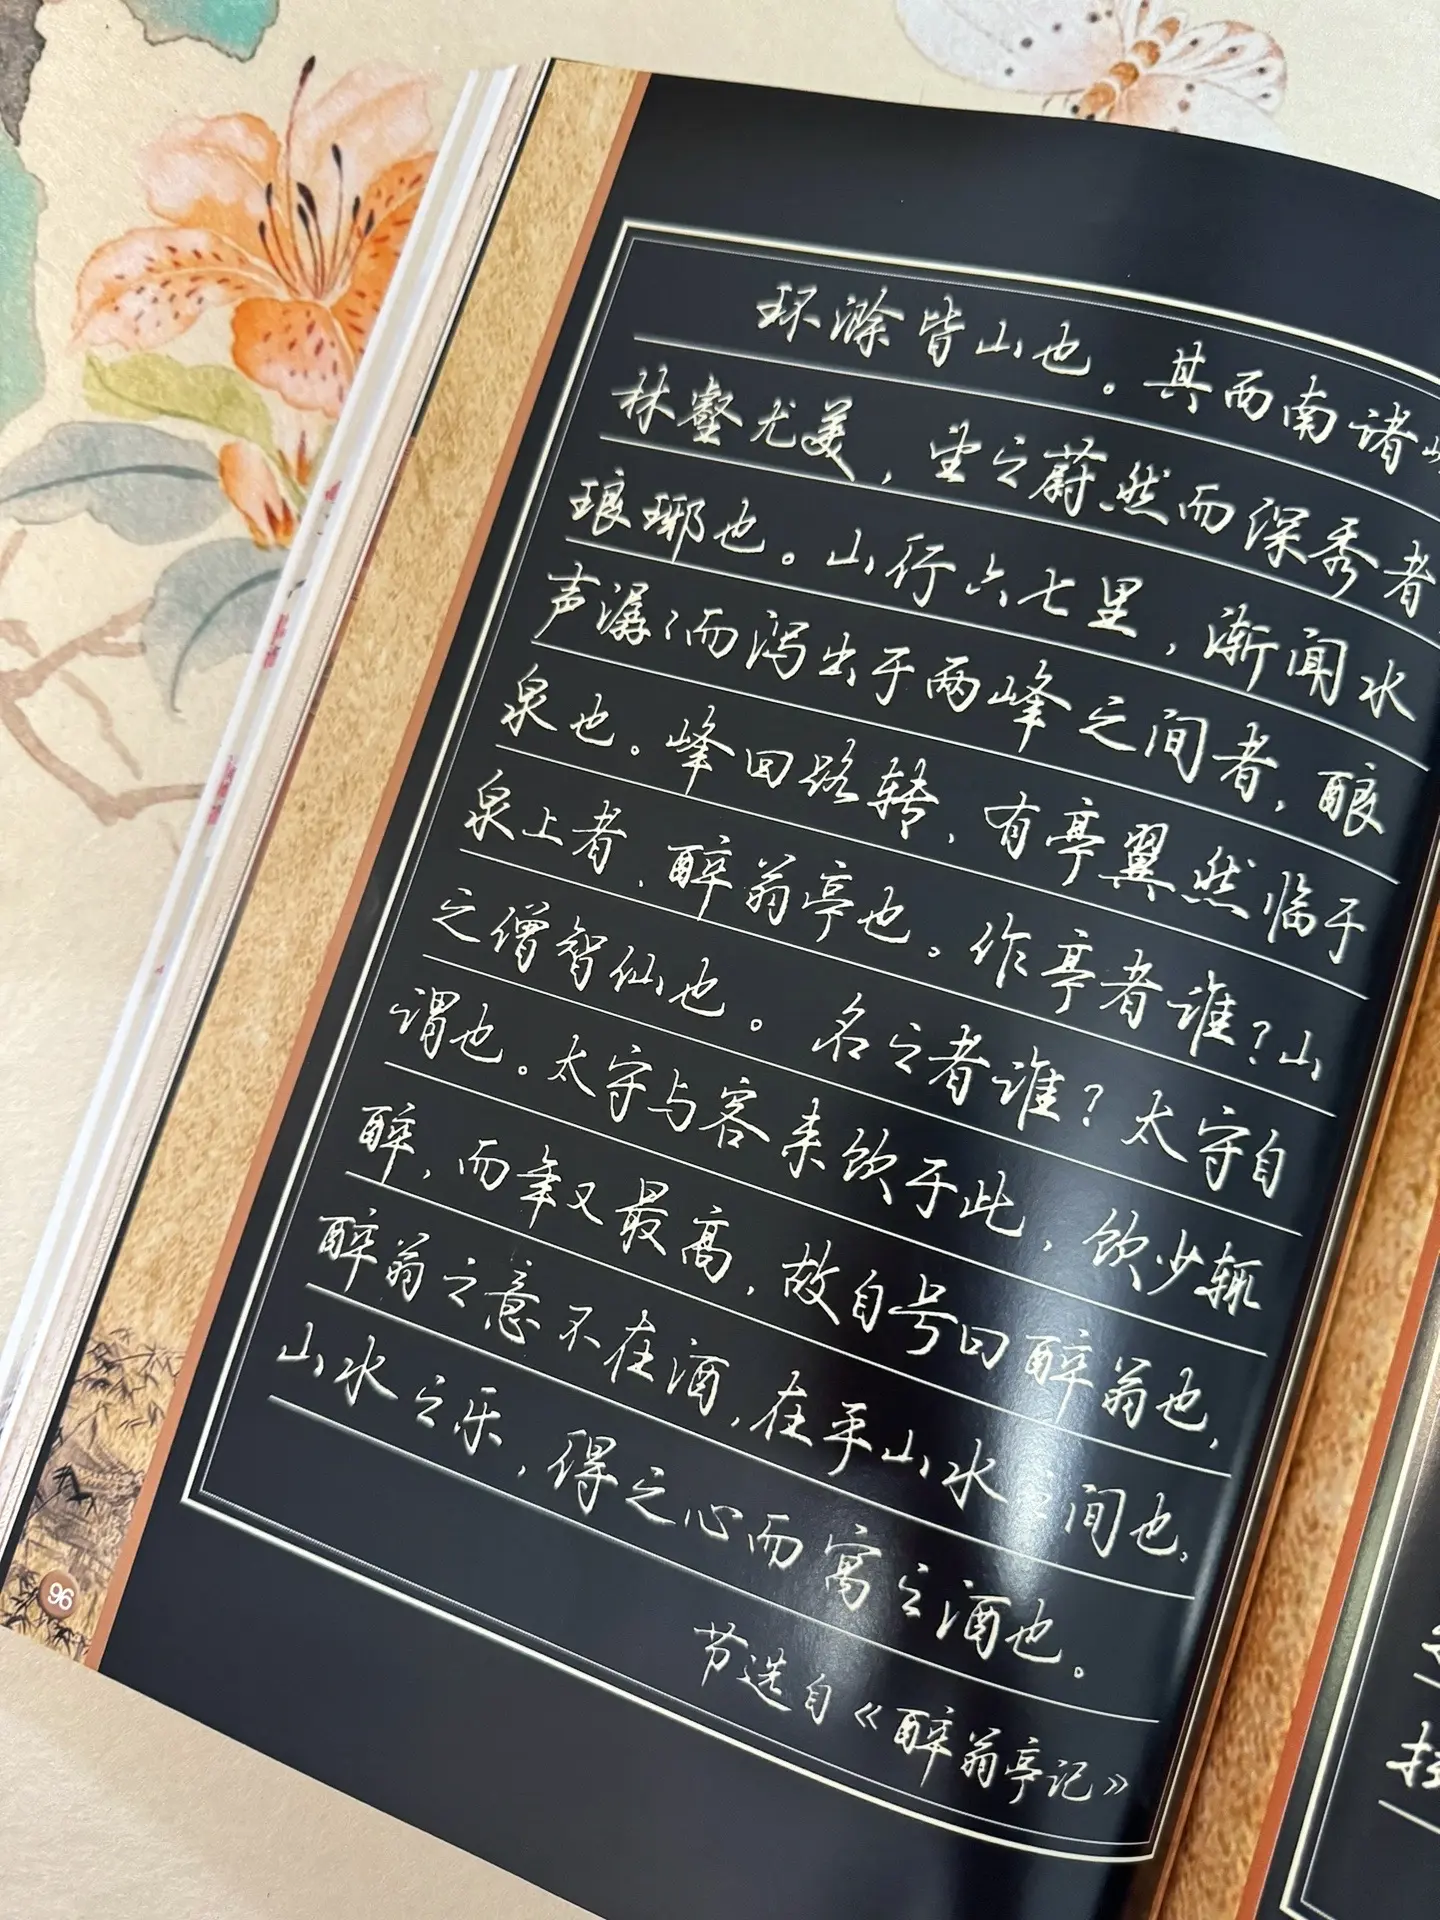 环滁皆山也。其西南诸峰
林壑尤美，望之蔚然而深秀者
琅琊也。山行六七里，渐闻水
声潺潺而泻出于两峰之间者，酿
泉也。峰回路转，有亭翼然临于
泉上者，醉翁亭也。作亭者谁？山
之僧智仙也。名之者谁？太守自
谓也。太守与客来饮于此，饮少辄
醉，而年又最高，故自号曰醉翁也，
醉翁之意不在酒，在乎山水之间也，
山水之乐，得之心而寓之酒也。
节选自《醉翁亭记》
96